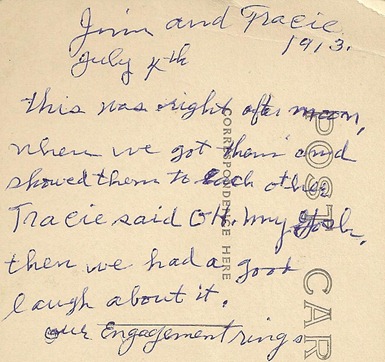 Jim and Tracie
July 4th 1913.
this was right after noon,
when we got them and
showed them to each other
Tracie said OH. my
then we had a good
laugh about it.
our Engagement rings
CORRESPONDENCE HERE
POST CAR